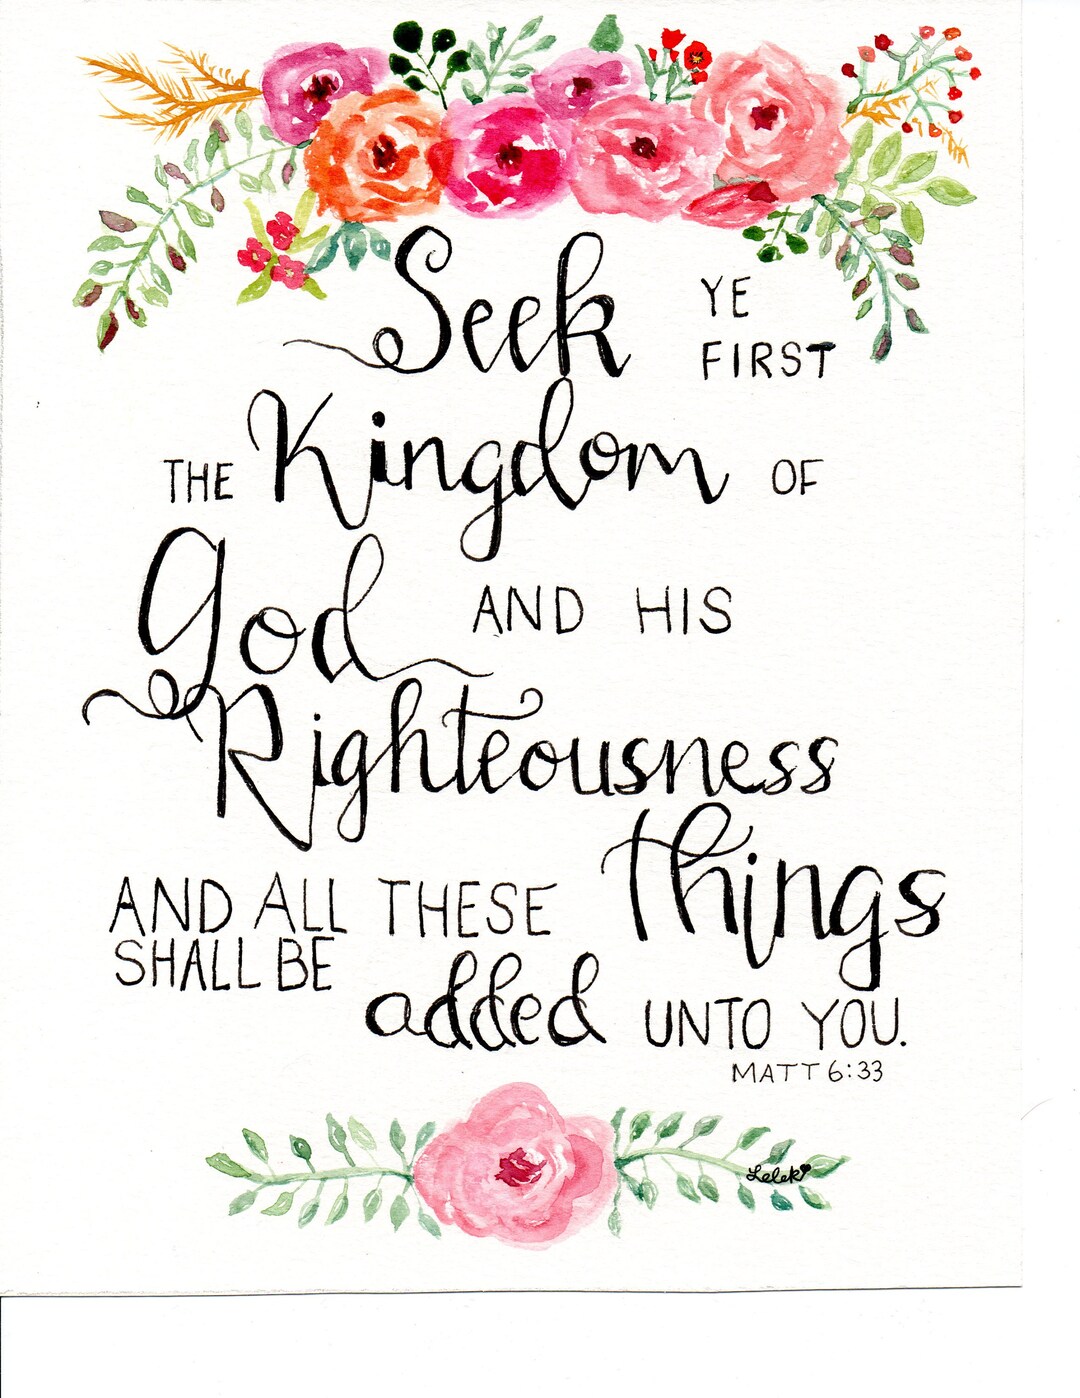 Seek YE
FIRST
THE Kingdom OF
God AND HIS
Righteousness
AND ALL THESE things
SHALL BE
added UNTO YOU.
MATT 6:33
Lelek